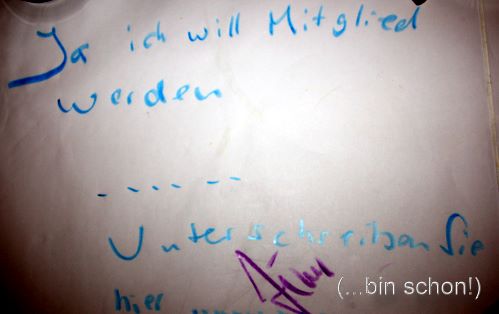 Ja ich will Mitglied
werden
- - - - - -
Unterschreiben Sie
hier
(...bin schon!)